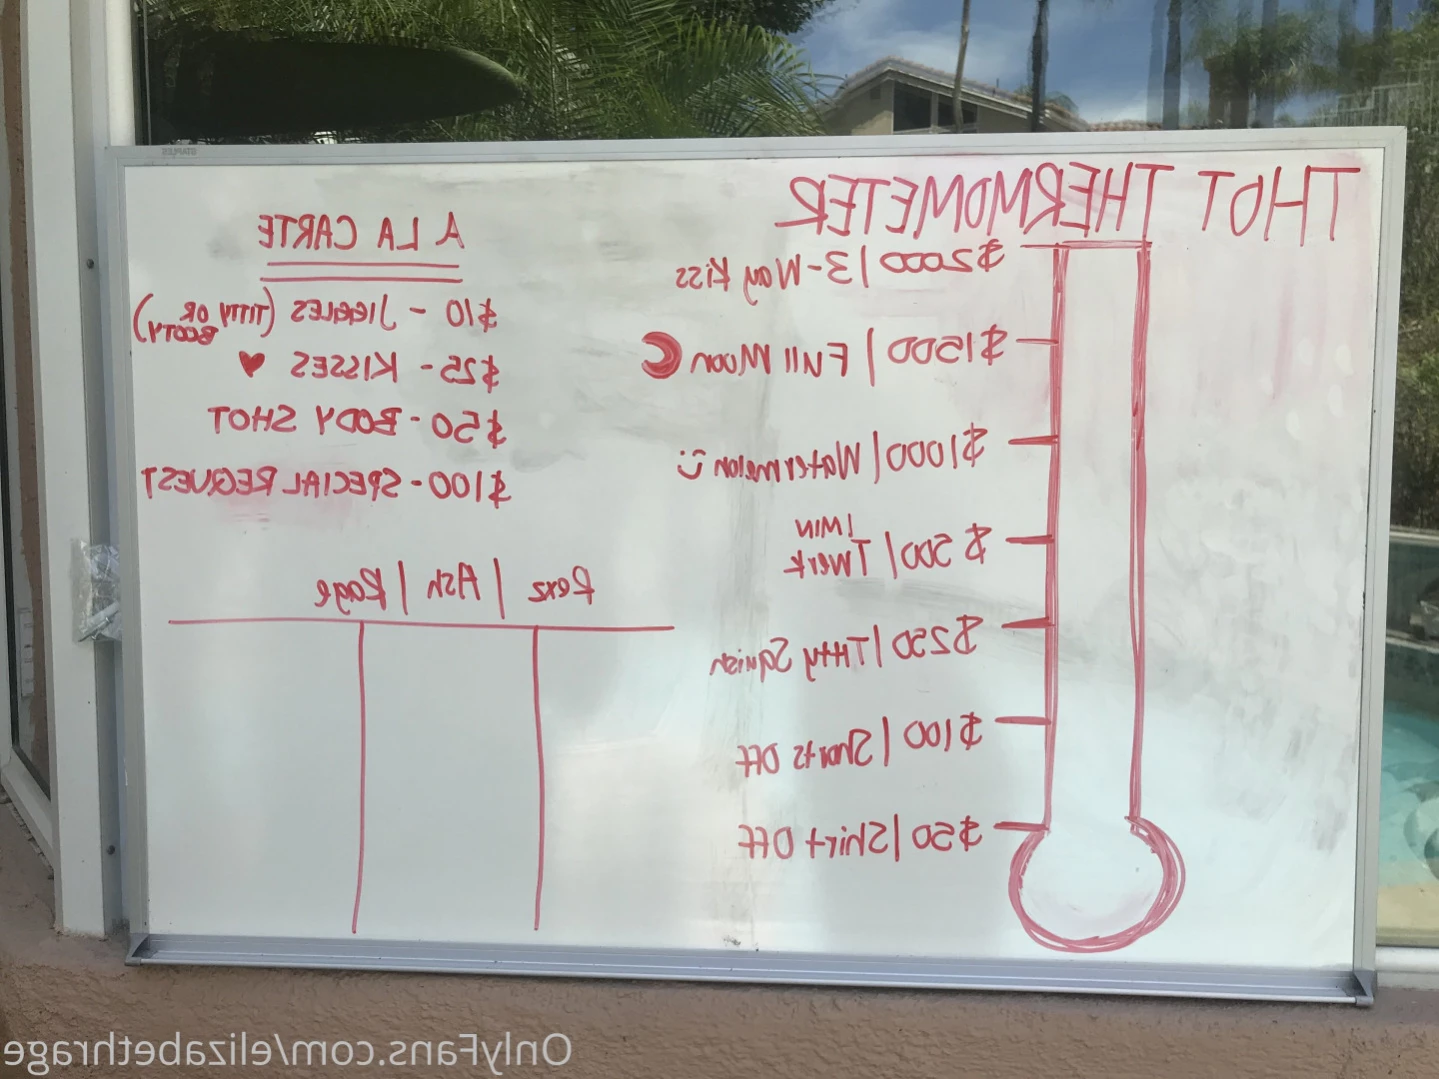 STAPLES
THOT THERMOMETER
$2000 | 3-Way Kiss
$1500 | Full Moon
$1000 | Watermelon
$500 | Twerk
1 MIN
$250 | Titty Squish
$100 | Shorts Off
$50 | Shirt Off
A LA CARTE
$10 - JIGGLES (TITTY OR
BOOTY)
$25 - KISSES ♥
$50 - BODY SHOT
$100 - SPECIAL REQUEST
Rerz | Ash | Rage
OnlyFans.com/elizabethrage